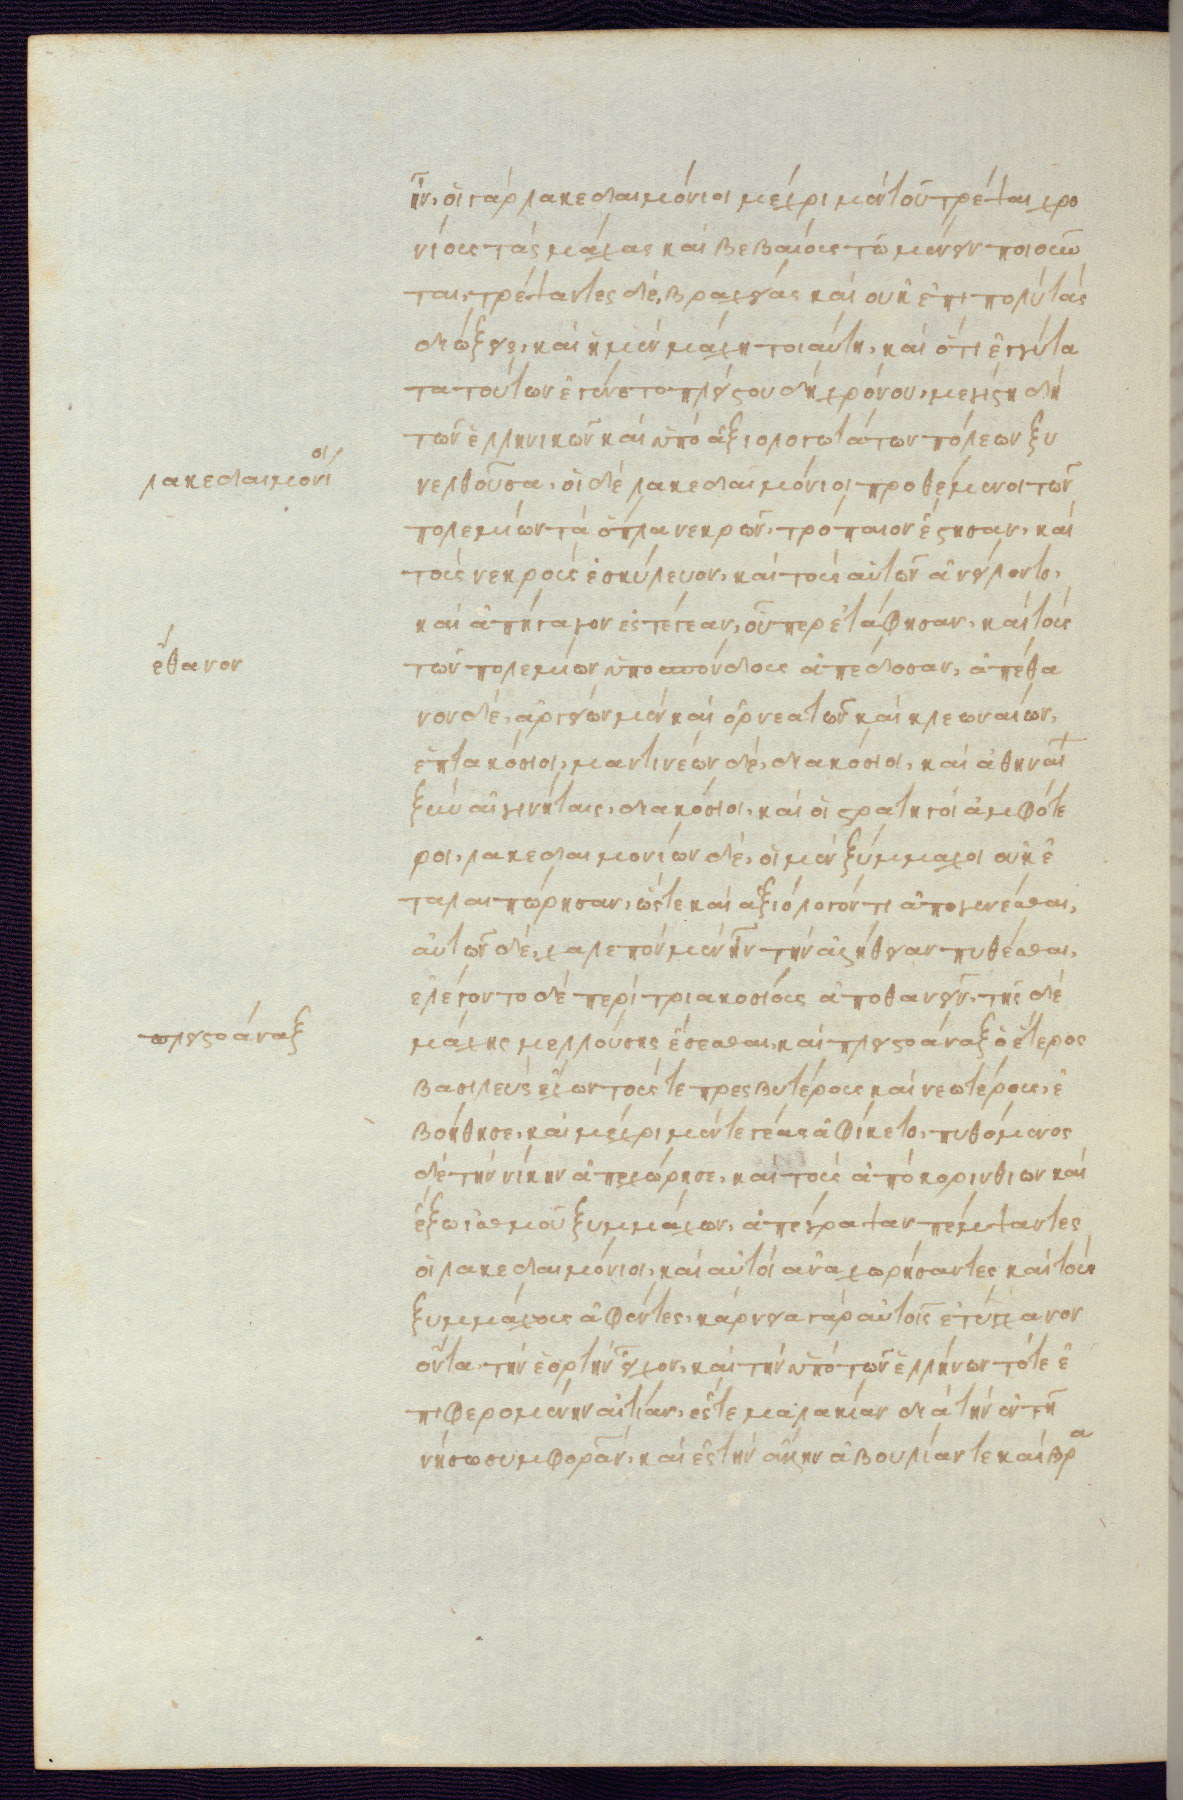 ἦν, οἱ γὰρ λακεδαιμόνιοι μέχρι μὲν τοῦ τρέψαι χρο
νίους τὰς μάχας καὶ βεβαίους τῶ μένειν ποιοῦν
ται, τρέψαντες δὲ, βραχείας καὶ οὐκ ἐπιπολὺ τὰς
διώξεις, καὶ ἡ μὲν μάχη τοιαύτη, καὶ ὅτι ἐγγύτα
τα τούτων ἐγένετο πλείστου δὴ χρόνου, μεγίστη δὴ
τῶν ἑλληνικῶν καὶ ὑπὸ ἀξιολογωτάτων πόλεων ξυ
λακεδαιμόνιοι
νελθοῦσα, οἱ δὲ λακεδαιμόνιοι προθέμενοι τῶν
πολεμίων τὰ ὅπλα νεκρῶν, τρόπαιον ἔστησαν, καὶ
τοὺς νεκροὺς ἐσκύλευον, καὶ τοὺς αὐτῶν ἀνείλοντο,
καὶ ἀπήγαγον ἐς τέγεαν, οὗπερ ἐτάφησαν, καὶ τοὺς
ἔθανον
τῶν πολεμίων ὑποσπόνδους ἀπέδοσαν, ἀπέθα
νον δὲ, ἀργείων μὲν καὶ ὀρνεατῶν καὶ κλεωναίων,
ἑπτακόσιοι, μαντινέων δὲ, διακόσιοι, καὶ ἀθηναί
ξὺν αἰγινήταις, διακόσιοι, καὶ οἱ στρατηγοὶ ἀμφότε
ροι, λακεδαιμονίων δὲ, οἱ μὲν ξύμμαχοι οὐκ ἐ
ταλαιπώρησαν, ὥστε καὶ ἀξιόλογόν τι ἀπογενέσθαι,
αὐτῶν δὲ, χαλεπὸν μὲν ἦν τὴν ἀλήθειαν πυθέσθαι,
ἐλέγοντο δὲ περὶ τριακοσίους ἀποθανεῖν, τῆς δὲ
πλειστοάναξ
μάχης μελλούσης ἔσεσθαι, καὶ πλειστοάναξ ὁ ἕτερος
βασιλεὺς ἔχων τούς τε πρεσβυτέρους καὶ νεωτέρους, ἐ
βοήθησε, καὶ μέχρι μὲν τεγέας ἀφίκετο, πυθόμενος
δὲ τὴν νίκην ἀπεχώρησε, καὶ τοὺς ἀπὸ κορινθίων καὶ
ἔξω ἰσθμοῦ ξυμμάχων, ἀπέτρεψαν πέμψαντες
οἱ λακεδαιμόνιοι, καὶ αὐτοὶ ἀναχωρήσαντες καὶ τοὺς
ξυμμάχους ἀφέντες, κάρνεια γὰρ αὐτοῖς ἐτύγχανον
ὄντα, τὴν ἑορτὴν ἦγον, καὶ τὴν ὑπὸ τῶν ἑλλήνων τότε ἐ
πιφερομένην αἰτίαν, ἔς τε μαλακίαν διὰ τὴν ἐν τῆ
νήσω συμφορὰν, καὶ ἐς τὴν ἄλλην ἀβουλίαν τε καὶ βρα